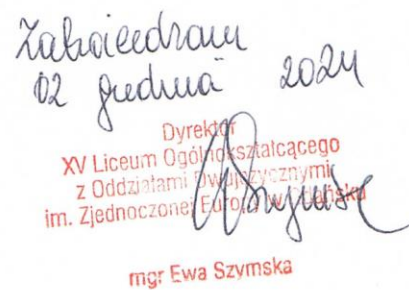 Zatwierdzam
02 grudnia 2024
Dyrektor
XV Liceum Ogólnokształcącego
z Oddziałami Dwujęzycznymi
im. Zjednoczonej Europy w Gdańsku
mgr Ewa Szymska